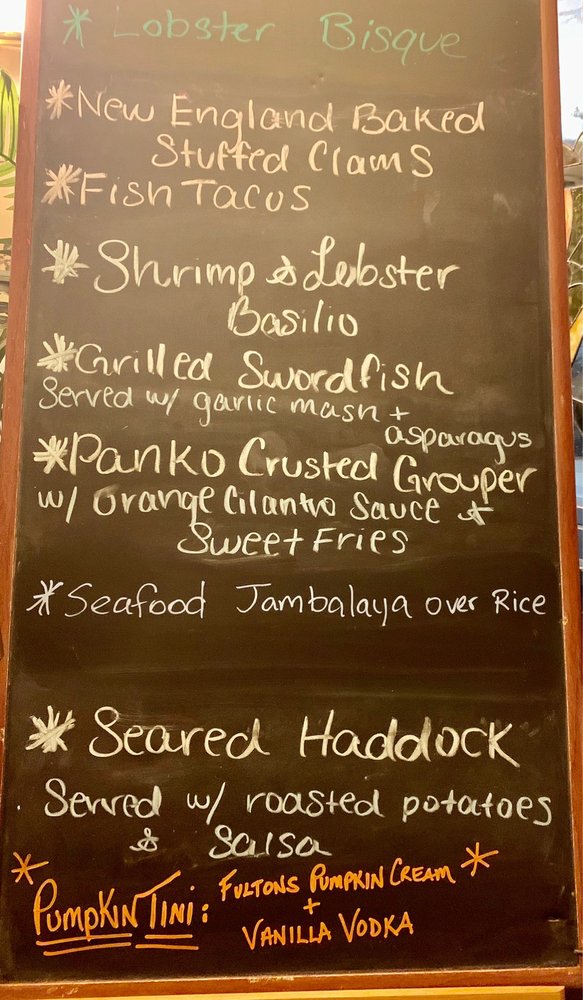 * Lobster Bisque
*New England Baked
Stuffed Clams
*Fish Tacos
*Shrimp & Lobster
Basilio
*Grilled Swordfish
Served w/ garlic mash +
asparagus
*Panko Crusted Grouper
w/ orange Cilantro Sauce +
Sweet Fries
*Seafood Jambalaya over Rice
* Seared Haddock
Served w/ roasted potatoes
& Salsa
* PUMPKIN TINI: FULTONS PUMPKIN CREAM *
+
VANILLA VODKA